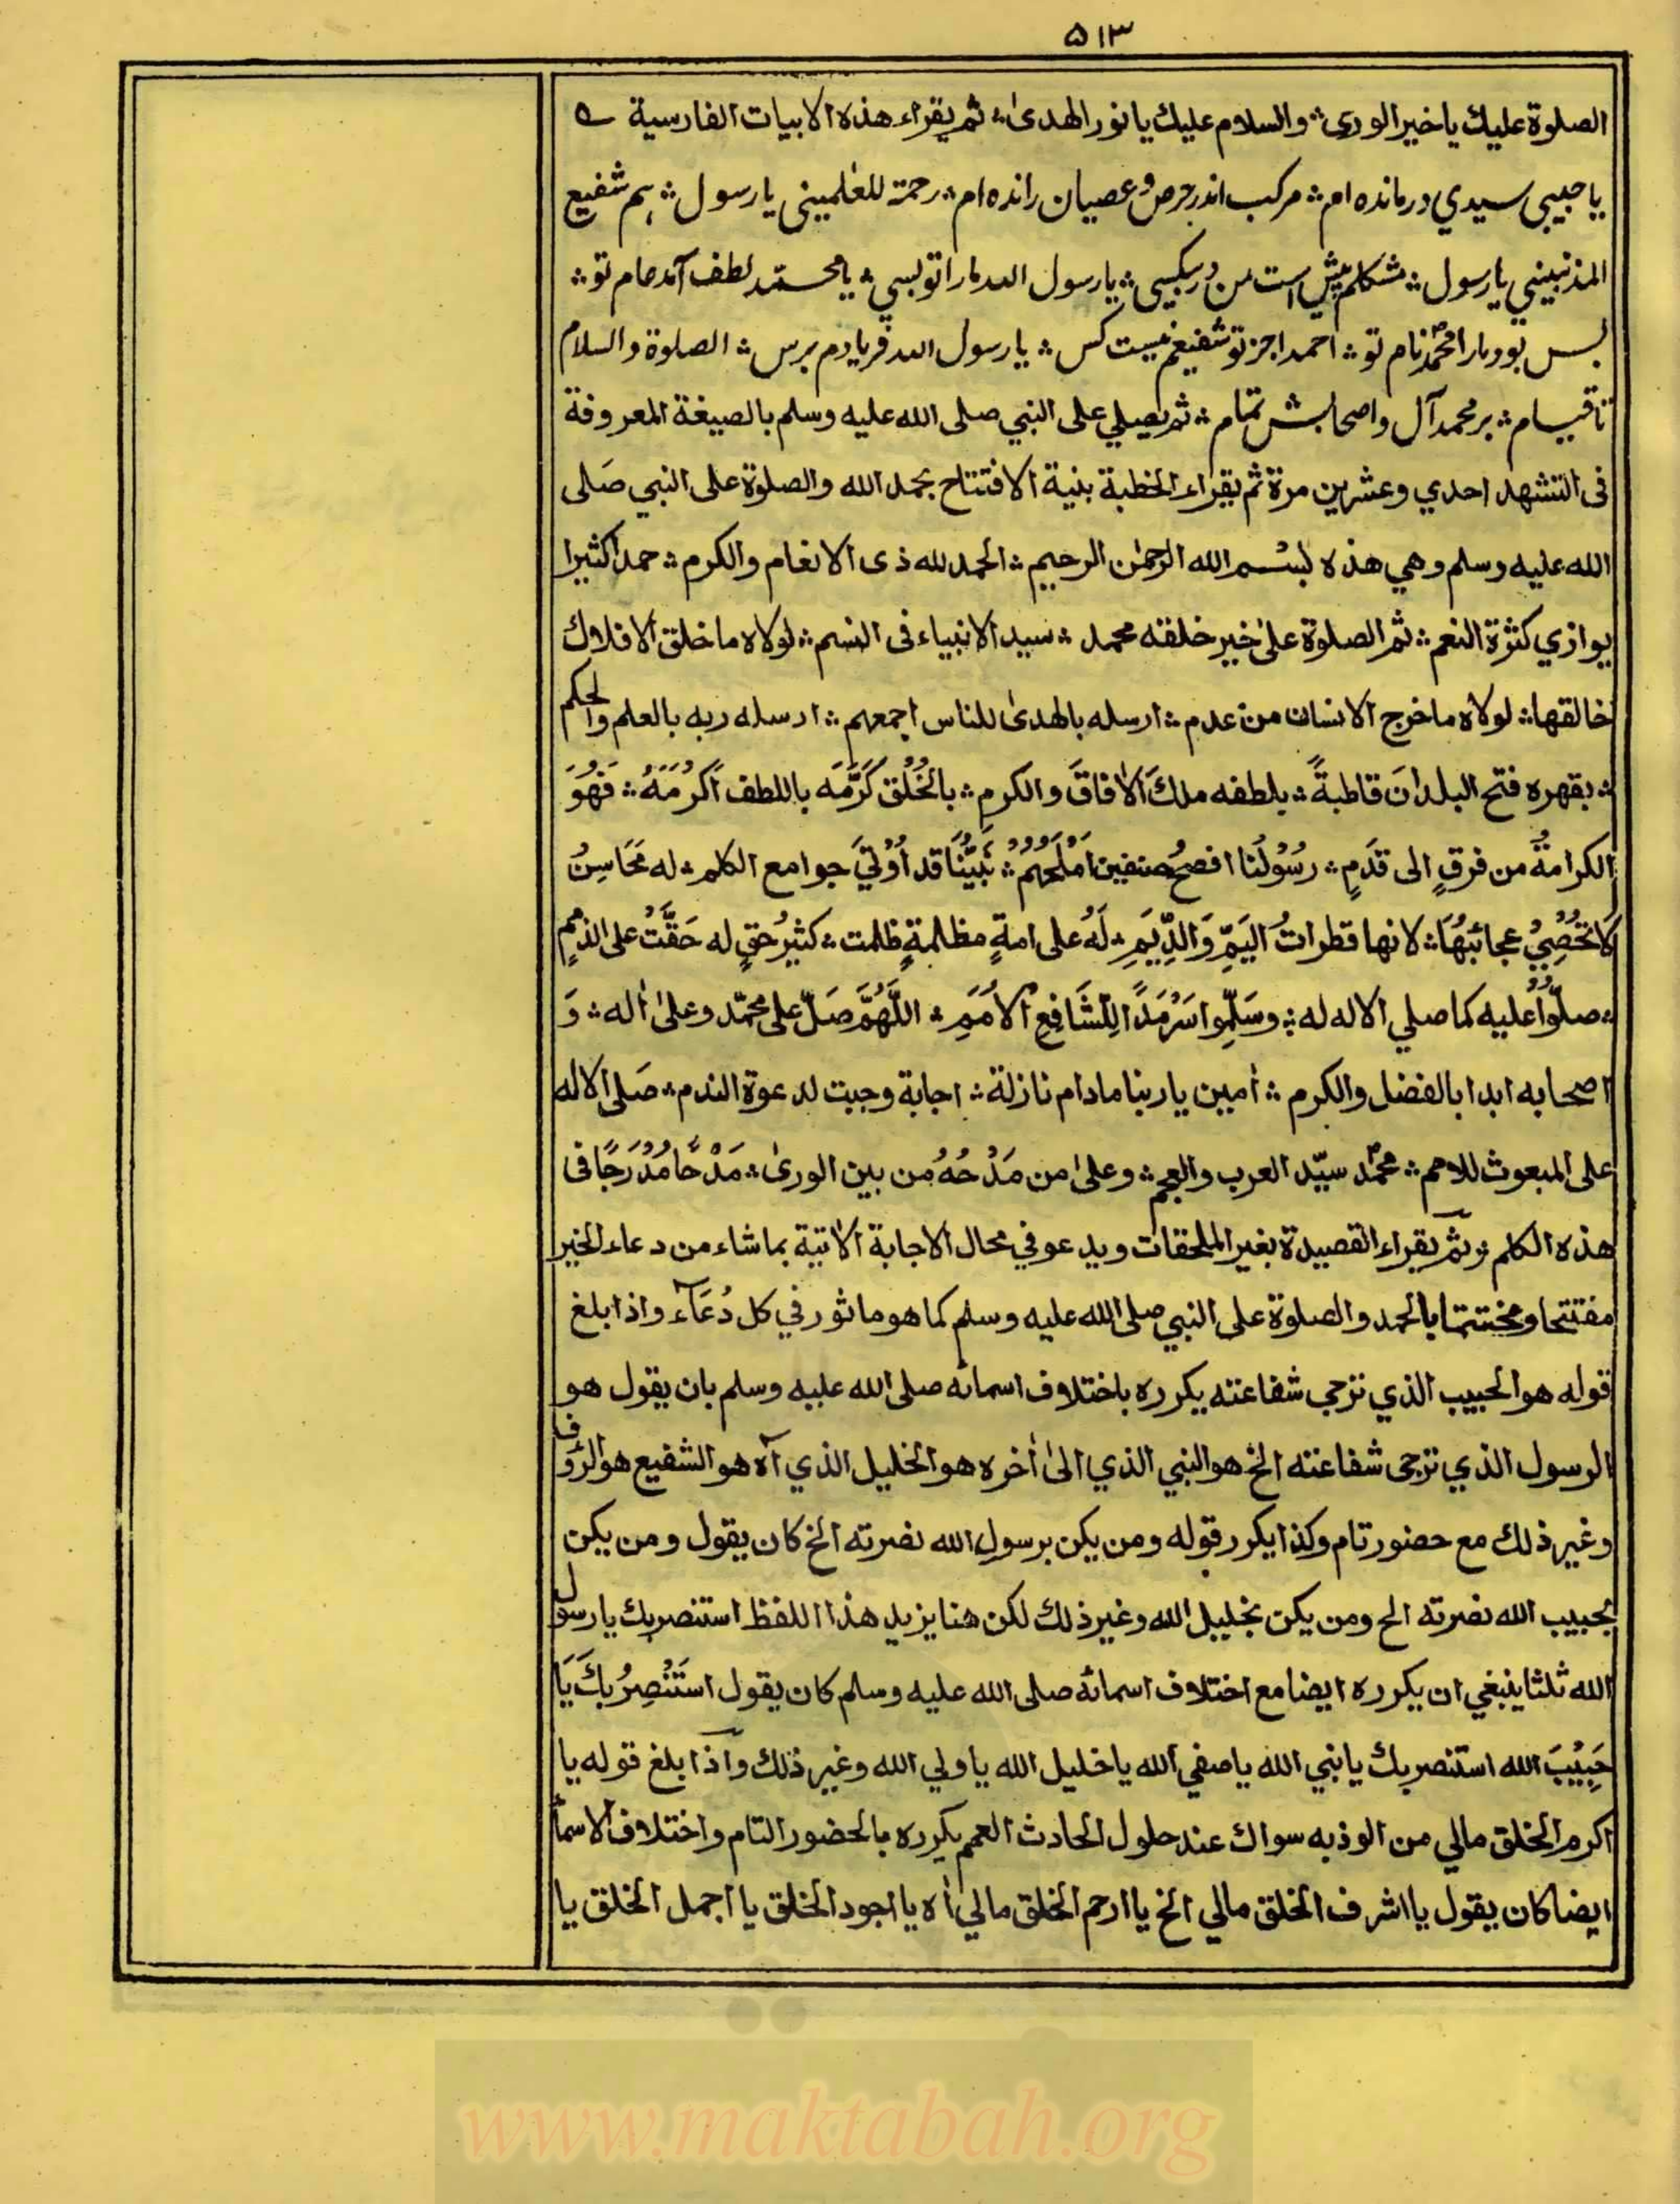 ۵۱۳
الصلوة عليك يا خير الورى ؞ والسلام عليك يا نور الهدىٰ ؞ ثم يقراء هذه الابيات الفارسية
يا حبيبي سيدي درمانده ام ؞ مركب اندر حرص و عصيان رانده ام ؞ رحمة للعٰلميني يا رسول ؞ ہم شفيع
المذنبيني يا رسول ؞ مشكلم پيش است من در بيكسي ؞ يا رسول الله مارا تو بسي ؞ يا محمّد لطف آمد عام تو ؞
بس بود مارا محمدؐ نام تو ؞ احمدا جز تو شفيعم نيست كس ؞ يا رسول الله فريادم برس ؞ الصلوة والسلام
تا قيام ؞ بر محمد آل واصحابش تمام ؞ ثم يصلي على النبي صلى الله عليه وسلم بالصيغة المعروفة
فى التشهد احدي وعشرين مرة ثم يقراء الخطبة بنية الافتتاح بحمد الله والصلوة على النبي صَلى
الله عليه وسلم وهي هذه بسْم الله الرحمٰن الرحيم ؞ الحمد لله ذى الانعام والكرم ؞ حمدا كثيرا
يوازي كثرة النعم ؞ ثم الصلوة علىٰ خير خلقته محمد ؞ سيد الانبياء فى النسم ؞ لولاه ما خلق الافلاك
خالقها ؞ لولاه ما خرج الانسان من عدم ؞ ارسله بالهدىٰ للناس اجمعهم ؞ ارسله ربه بالعلم والحكم
؞ بقهره فتح البلدانَ قاطبةً ؞ بلطفه ملكَ الاٰفاقَ والكرم ؞ بالخُلْق كَرَّمَه باللطف اَكْرَمَهُ ؞ فَهُوَ
الكرامةُ من فرقٍ الى قدَمٍ ؞ رسُوْلُنا افصحُ صنفين اَمْلَحُهُمْ ؞ نَبيُّنَا قد اُوْتيَ جوامع الكلم ؞ له مَحَاسِنُ
لا تُحْصِيْ عجائبُهَا ؞ لانها قطراتُ اليَمِّ وَالدِّيَمِ ؞ لَهُ على امةٍ مظلمةٍ ظلمت ؞ كثيرُ حقٍ له حَقَّتْ على الذممٍ
؞ صلّوْا عليه كما صلي الاله له ؞ وسَلِّموا سَرْمَدًا لِلشَّافِعِ الْاُمَمِ ؞ اَللّٰهُمَّ صَلِّ على محمّد وعلىٰ اٰله ؞ وَ
اصحابه ابدا بالفضل والكرم ؞ اٰمين يا ربنا مادام نازلة ؞ اجابة وجبت لدعوة الندم ؞ صَلى الاله
على المبعوث للامم ؞ محمّدؐ سيّد العرب والعجم ؞ وعلىٰ من مَدْحُهُ من بين الورىٰ ؞ مَدْحًا مُدْرَجًا فى
هذه الكلم ؞ ثم يقراء القصيدة بغير الملحقات ويدعو في محال الاجابة الاٰتية بما شاء من دعاء الخير
مفتتحا ومختتما بالحمد والصلوة على النبي صلى الله عليه وسلم كما هو ماثور في كل دُعَآء واذا بلغ
قوله هو الحبيب الذي ترجى شفاعته يكرره باختلاف اسمائه صلى الله عليه وسلم بان يقول هو
الرسول الذي ترجى شفاعته الخ هو النبي الذي الىٰ اٰخره هو الخليل الذي آه هو الشفيع هو الرؤف
وغير ذلك مع حضور تام وكذا يكرر قوله ومن يكن برسولِ الله نصرته الخ كان يقول ومن يكن
بحبيب الله نصرته الح ومن يكن بخليل الله وغير ذلك لكن هنا يزيد هذا اللفظ استنصر بك يا رسول
الله ثلثا ينبغي ان يكرره ايضا مع اختلاف اسمائه صلى الله عليه وسلم كان يقول استَنْصِرُ بكَ يَا
حَبِيْبَ الله استنصر بك يا نبي الله يا صفي الله يا خليل الله يا ولي الله وغير ذلك واذا بلغ قوله يا
اكرم الخلق مالي من الوذ به سواك عند حلول الحادث العمم يكرره بالحضور التام واختلاف الاسماٰ
ايضا كان يقول يا اشرف الخلق مالي الخ يا ارحم الخلق مالي اٰه يا اجود الخلق يا اجمل الخلق يا
www.maktabah.org